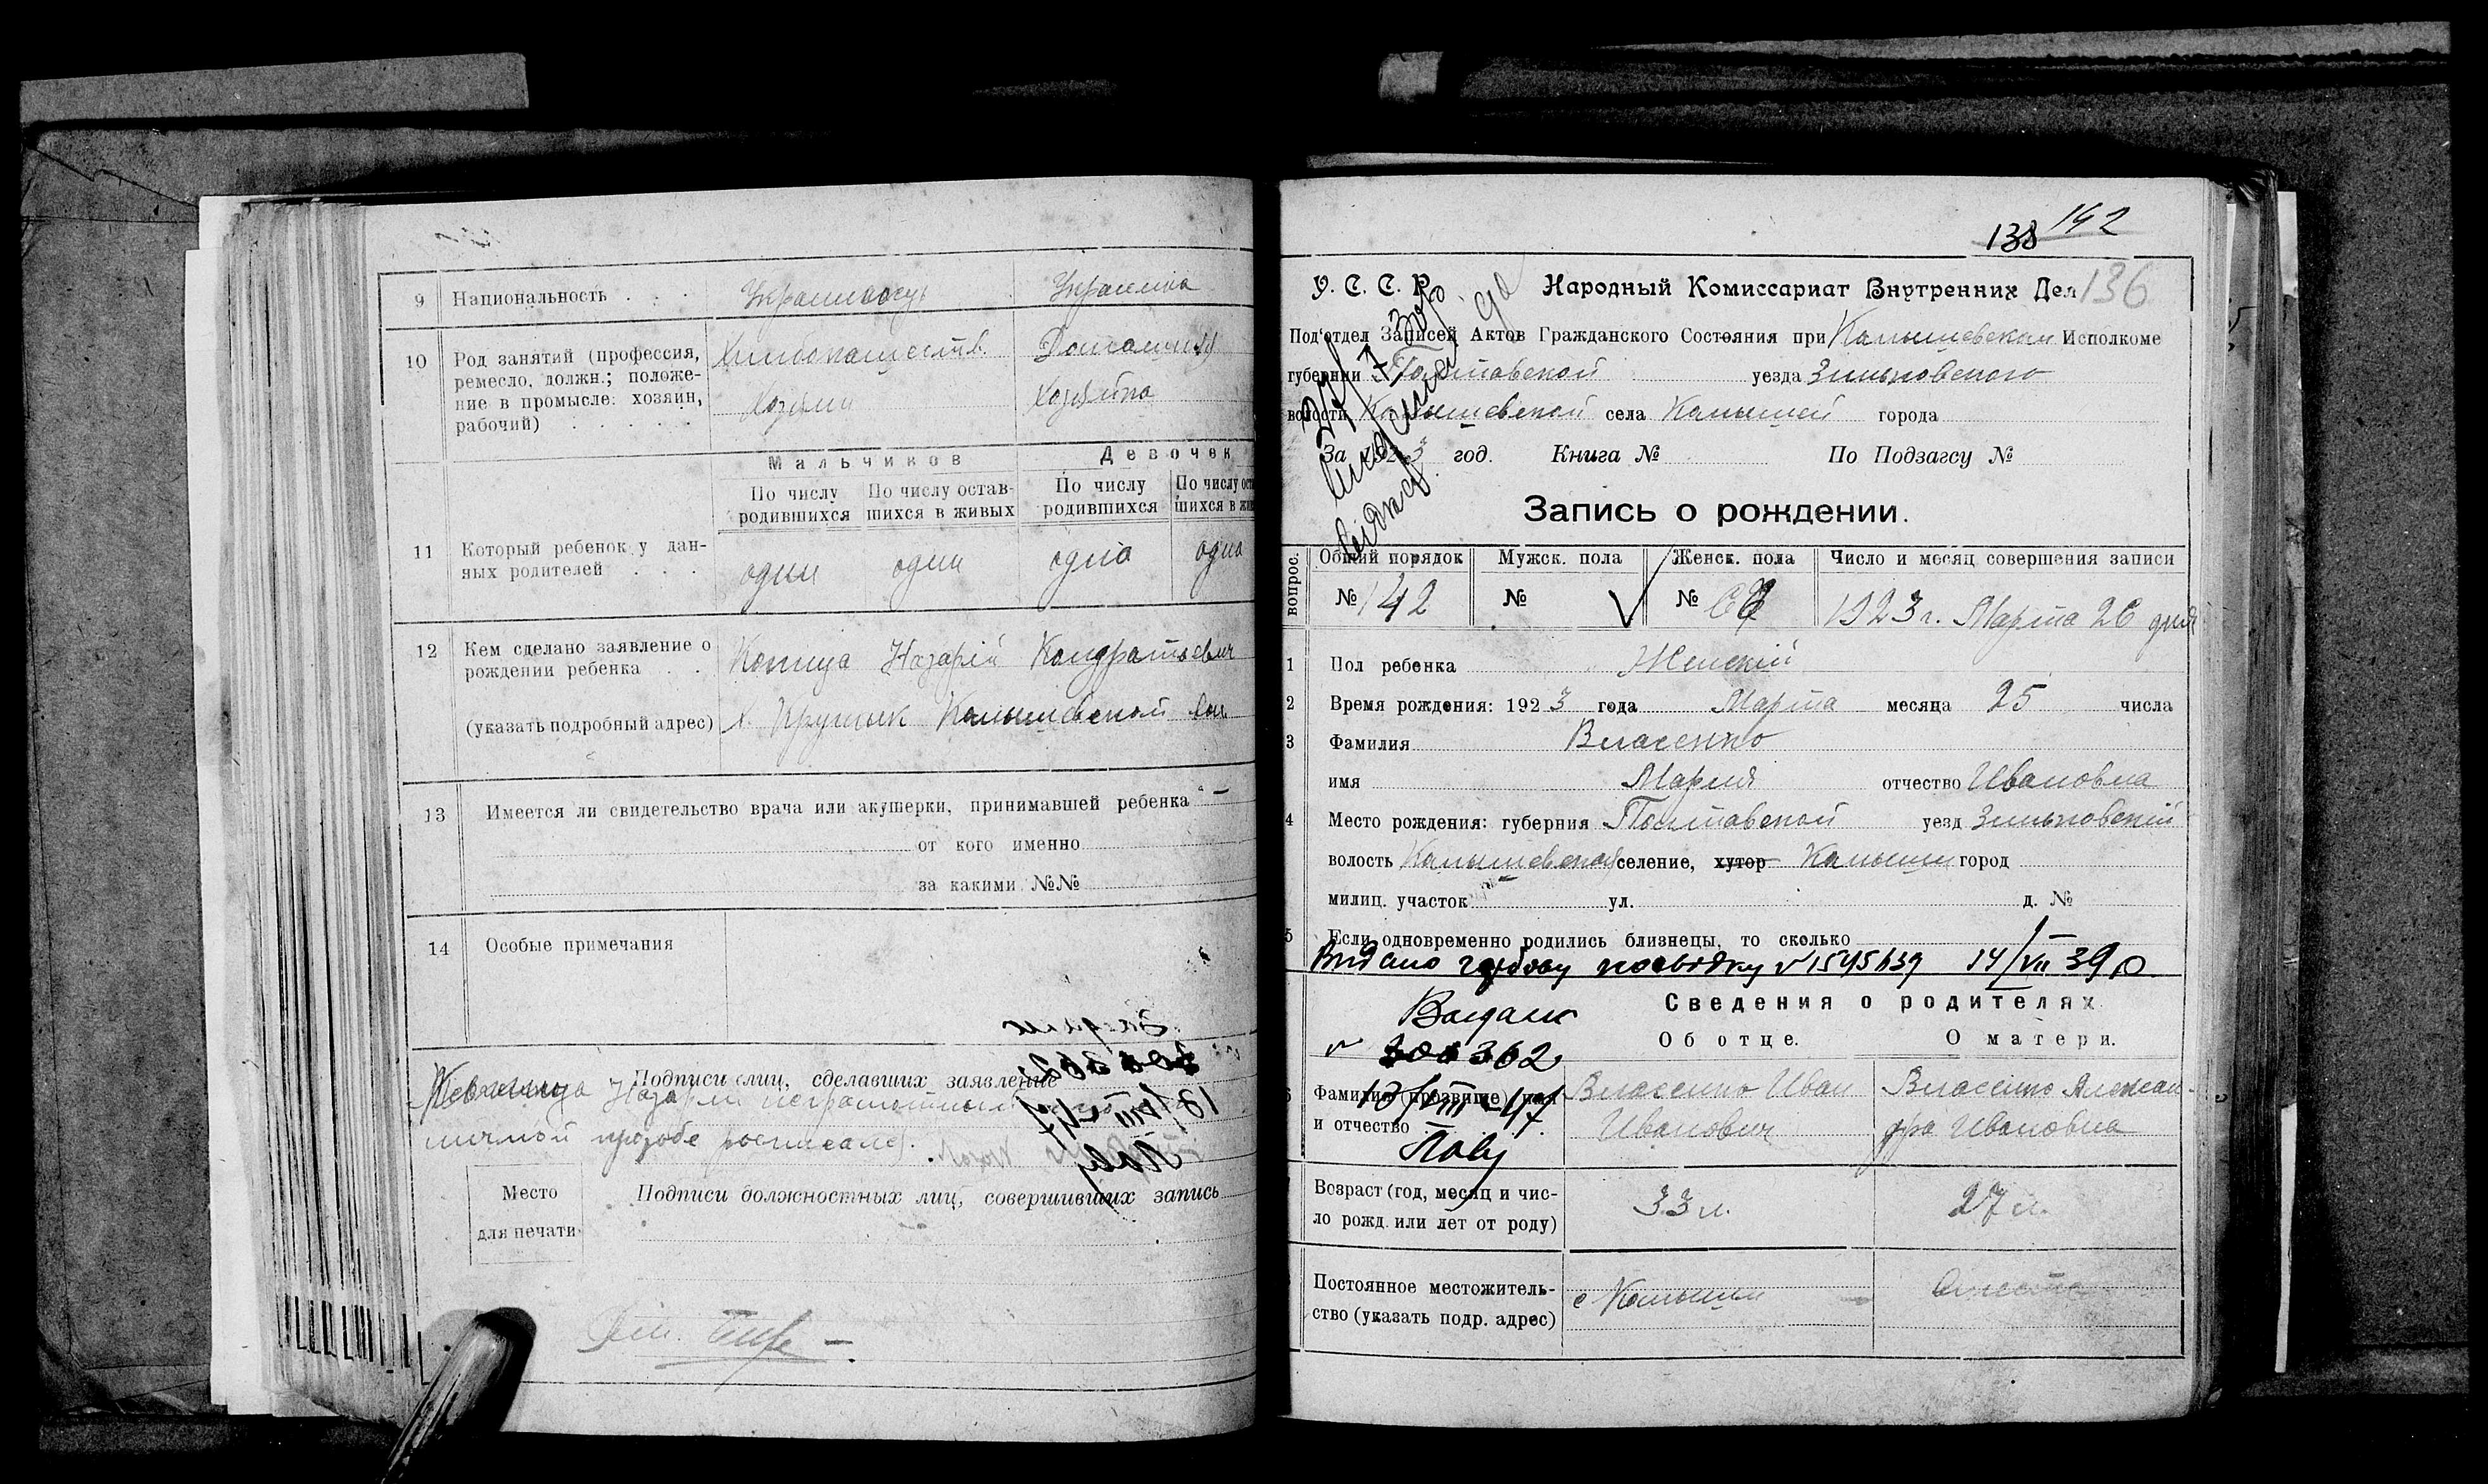 9 Национальность . . . Украинец Украинка
10 Род занятий (профессия, ремесло, должн.; положе-
ние в промысле: хозяин,
рабочий) . . . . .
Хлебопашеств. Домашн.
Хозяин Хозяйка
Мальчиков Девочек
По числу родившихся По числу остав-шихся в живых По числу родившихся По числу ост шихся в жи
11 Который ребенок у дан-
ных родителей . . .
один один одна одна
12 Кем сделано заявление о
рождении ребенка . .
Назарій Кондратьевич
(указать подробный адрес) х. Крутьк Камышевской вол
13 Имеется ли свидетельство врача или акушерки, принимавшей ребенка —
от кого именно
за какими №№
14 Особые примечания
Подписи лиц, сделавших заявление
Назарій неграмотный
личной прозьбе росписался.
Место
для печати
Подписи должностных лиц, совершивших запись
138 142
У. С. С. Р. Народный Комиссариат Внутренних Дел 136
Под'отдел Записей Актов Гражданского Состояния при Камышевском Исполкоме
губернии Полтавской уезда Зиньковского
волости Камышевской села Камышей города
За 1923 год. Книга № По Подзагсу №
Запись о рождении.
вопрос. Общий порядок Мужск. пола Женск. пола Число и месяц совершения записи
№ 142 № № 1923 г. Марта 26 дня
1 Пол ребенка Женскій
2 Время рождения: 1923 года Марта месяца 25 числа
3 Фамилия Власенко
имя Мария отчество Ивановна
4 Место рождения: губерния Полтавской уезд Зиньковскій
волость Камышевская селение, хутор Камыши город
милиц. участок ул. д. №
5 Если одновременно родились близнецы, то сколько
Видано посвідку 14/VII 39 р
Сведения о родителях
Об отце. О матери.
Фамилия (прозвище) имя
и отчество
Власенко Иван Власенко Алексан-
Иванович дра Ивановна
Возраст (год, месяц и чис-
ло рожд. или лет от роду)
33 л. 27 л.
Постоянное местожитель-
ство (указать подр. адрес)
с Камыши